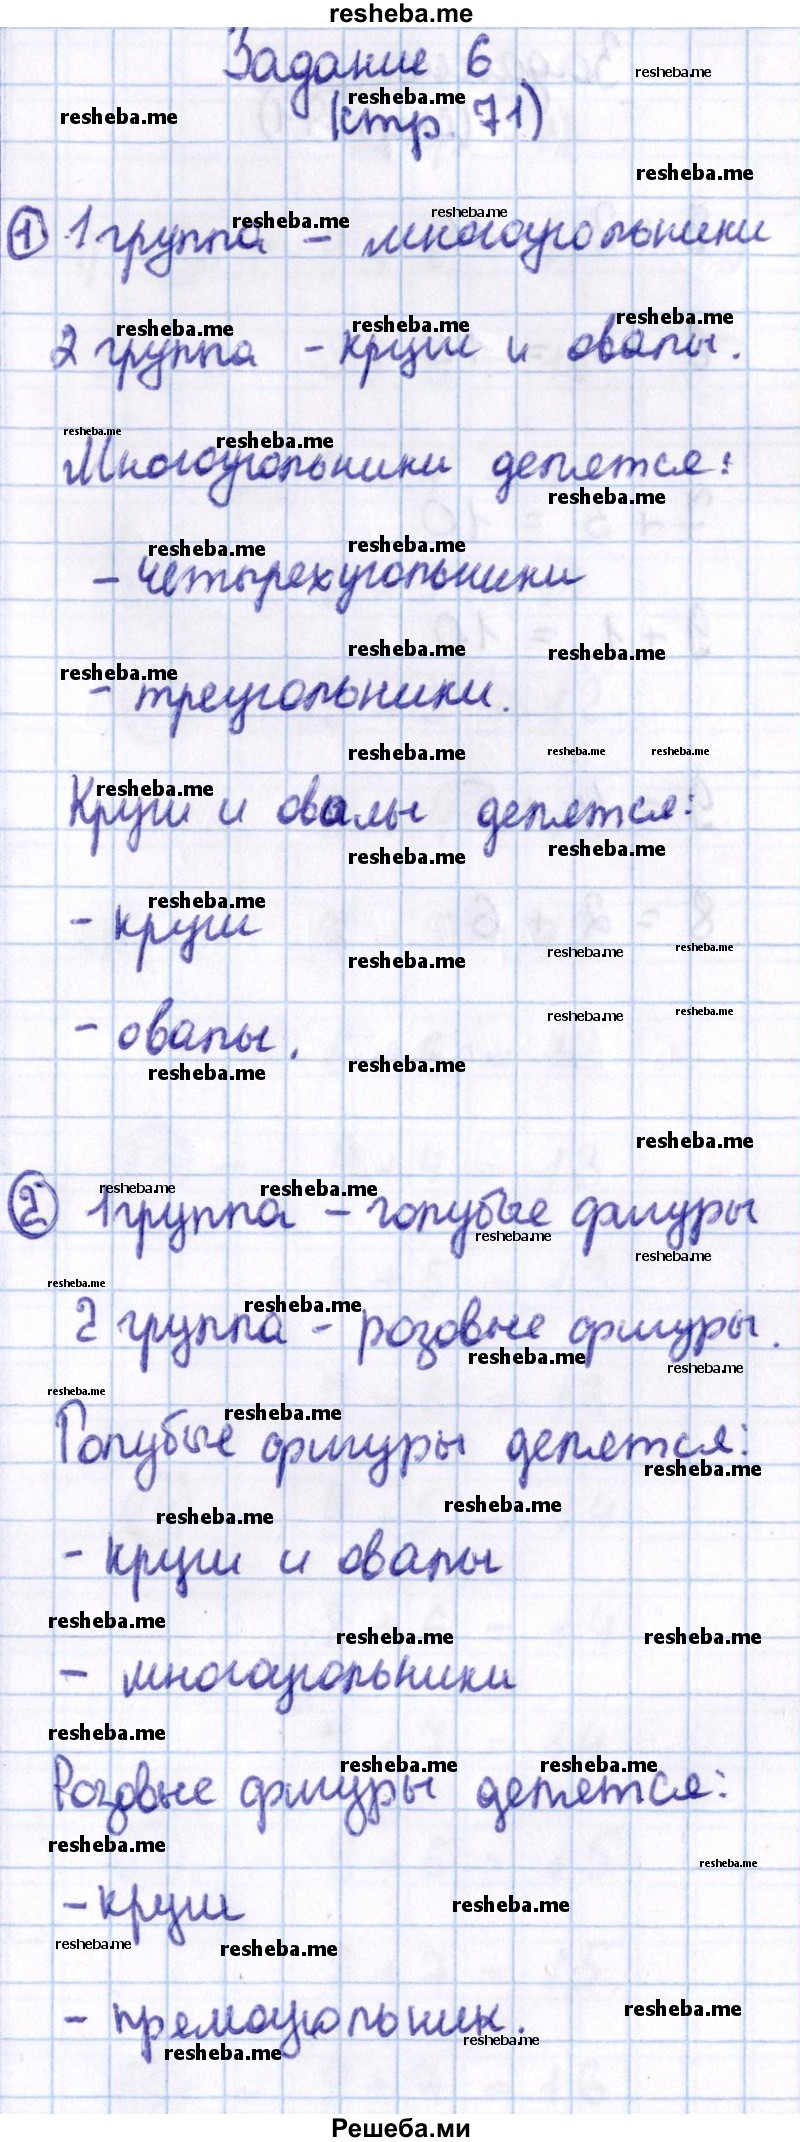 resheba.me
Задание 6
(стр. 71)
① 1 группа – многоугольники
2 группа – круги и овалы.
Многоугольники делятся:
– четырехугольники
– треугольники.
Круги и овалы делятся:
– круги
– овалы.
② 1 группа – голубые фигуры
2 группа – розовые фигуры.
Голубые фигуры делятся:
– круги и овалы
– многоугольники
Розовые фигуры делятся:
– круги
– прямоугольник.
Решеба.ми